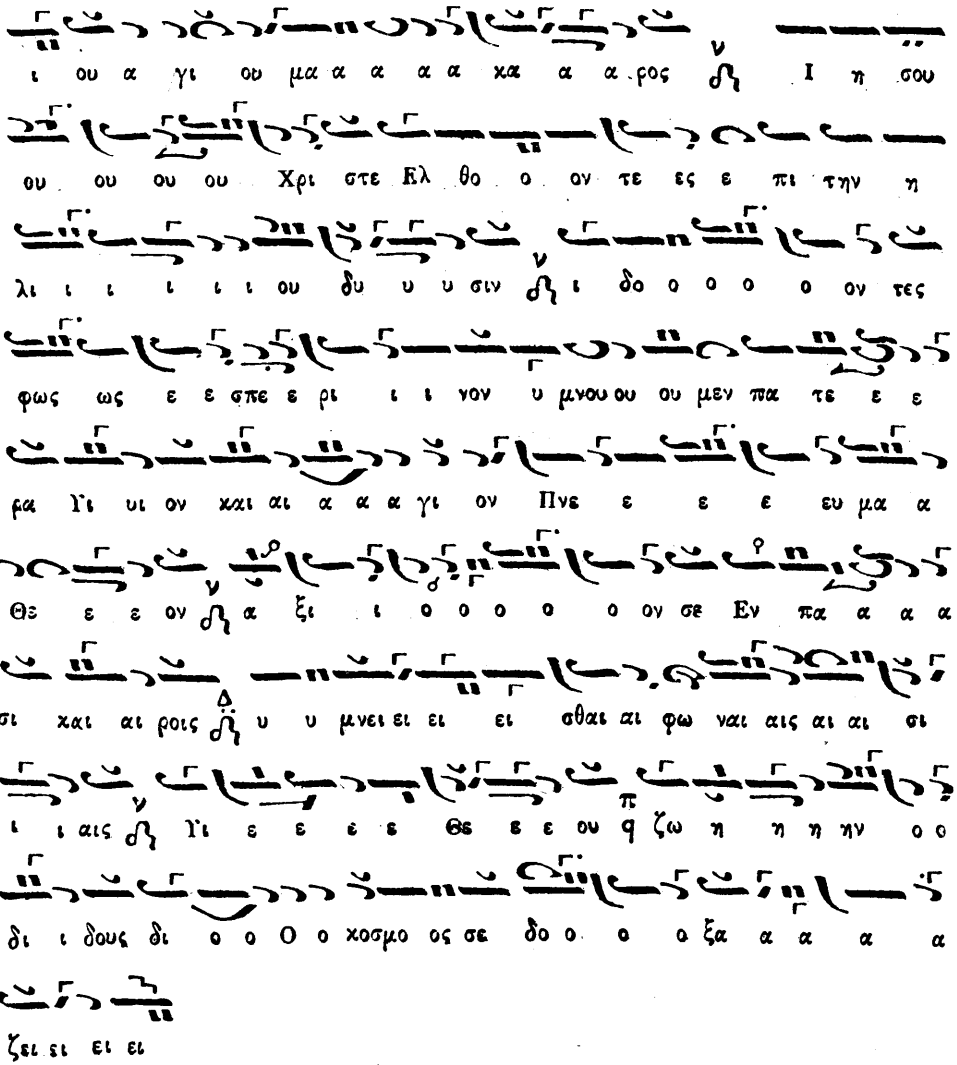 ι ου α γι ου μα α α α α κα α α ρος ν Ι η σου
ου ου ου ου Χρι στε Ελ θο ο ον τε ες ε πι την η
λι ι ι ι ι ι ου δυ υ υ σιν ν ι δο ο ο ο ο ον τες
φως ως ε ε σπε ε ρι ι ι νον υ μνου ου ου μεν πα τε ε ε
ρα Υι υι ον και αι α α α γι ον Πνε ε ε ε ευ μα α
Θε ε ε ον ν α ξι ι ο ο ο ο ο ον σε Εν πα α α α
σι και αι ροις Δ υ υ μνει ει ει ει σθαι αι φω ναι αις αι αι σι
ι ι αις ν Υι ε ε ε ε Θε ε ε ου π q ζω η η η ην ο ο
δι ι δους δι ο ο Ο ο κοσμο ος σε δο ο ο ο ξα α α α α
ζει ει ει ει